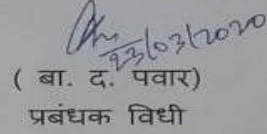 23/03/2020
( बा. द. पवार)
प्रबंधक विधी